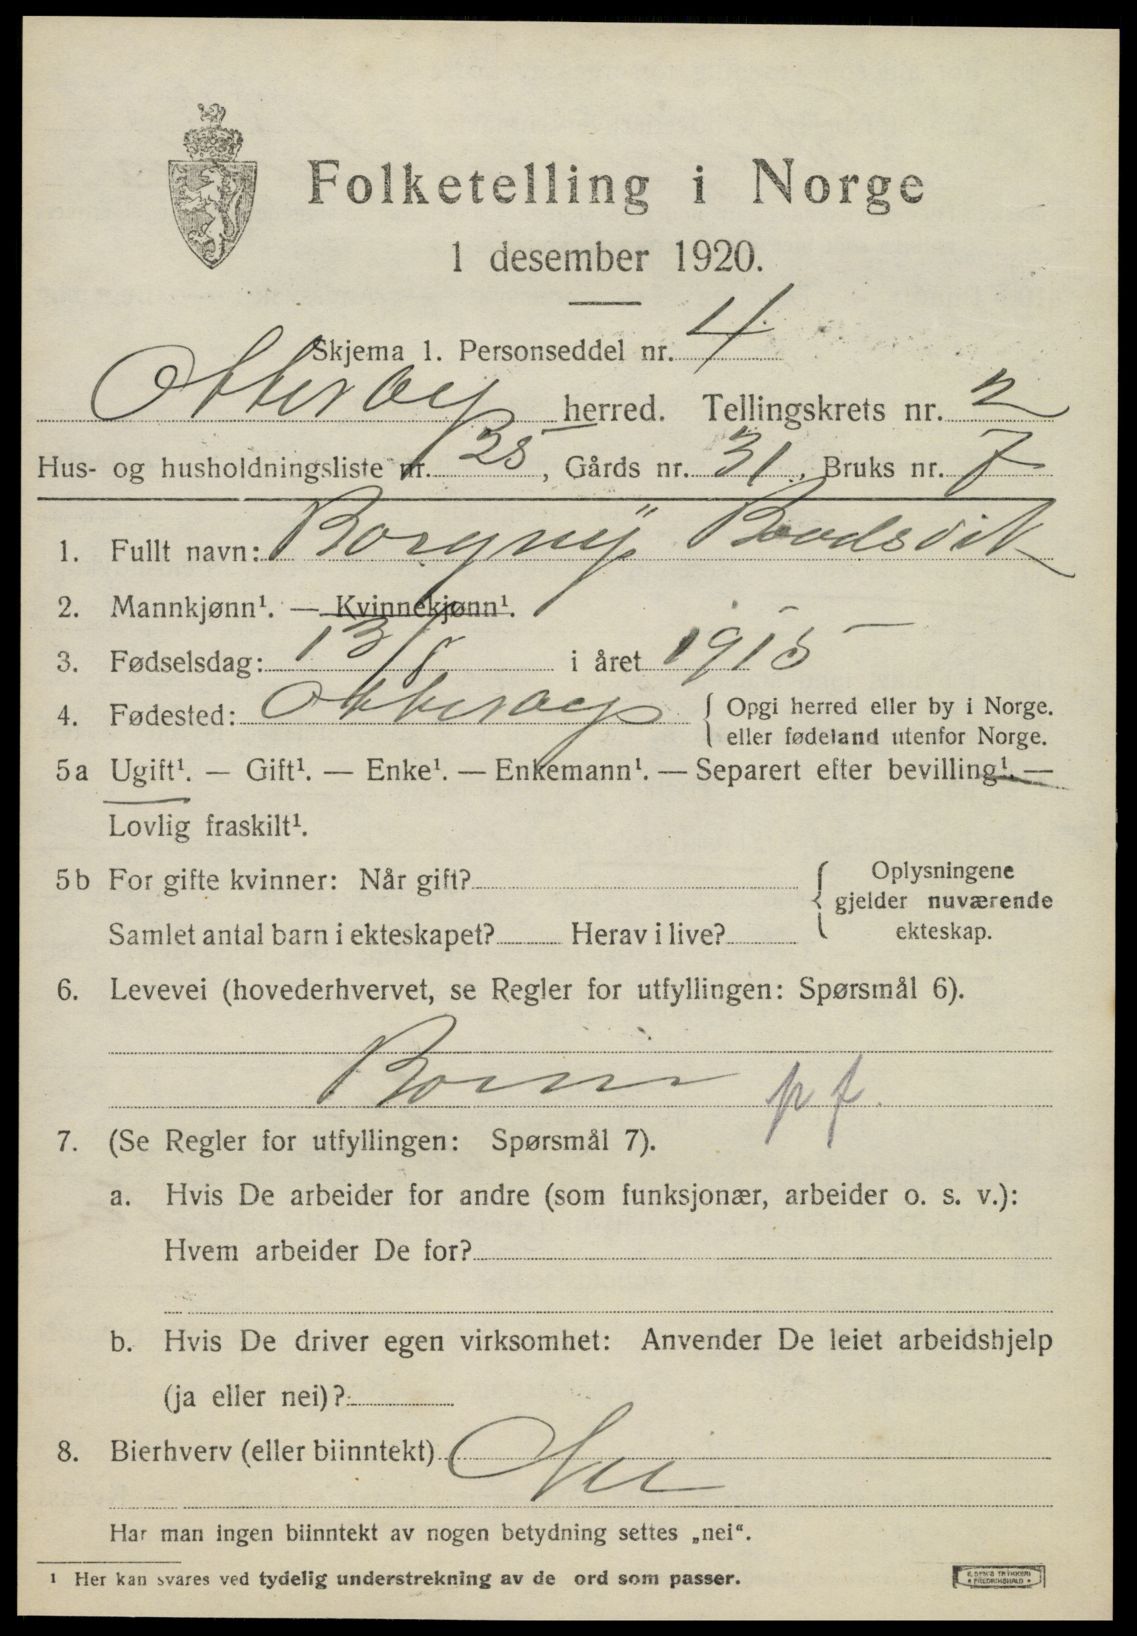 Folketelling i Norge
1 desember 1920.
Skjema 1. Personseddel nr. 4
Otterøy herred. Tellingskrets nr. 2
Hus- og husholdningsliste nr. 35, Gårds nr. 31, Bruks nr. 7
1. Fullt navn: Borgny
2. Mannkjønn¹. — Kvinnekjønn¹.
3. Fødselsdag: 13/8 i året 1915
4. Fødested: Otterøy { Opgi herred eller by i Norge.
eller fødeland utenfor Norge.
5a Ugift¹. — Gift¹. — Enke¹. — Enkemann¹. — Separert efter bevilling¹. —
Lovlig fraskilt¹.
5b For gifte kvinner: Når gift? { Oplysningene
gjelder nuværende
Samlet antal barn i ekteskapet? Herav i live? ekteskap.
6. Levevei (hovederhvervet, se Regler for utfyllingen: Spørsmål 6).
Barn p f.
7. (Se Regler for utfyllingen: Spørsmål 7).
a. Hvis De arbeider for andre (som funksjonær, arbeider o. s. v.):
Hvem arbeider De for?
b. Hvis De driver egen virksomhet: Anvender De leiet arbeidshjelp
(ja eller nei)?
8. Bierhverv (eller biinntekt) Nei
Har man ingen biinntekt av nogen betydning settes „nei“.
¹ Her kan svares ved tydelig understrekning av de ord som passer.